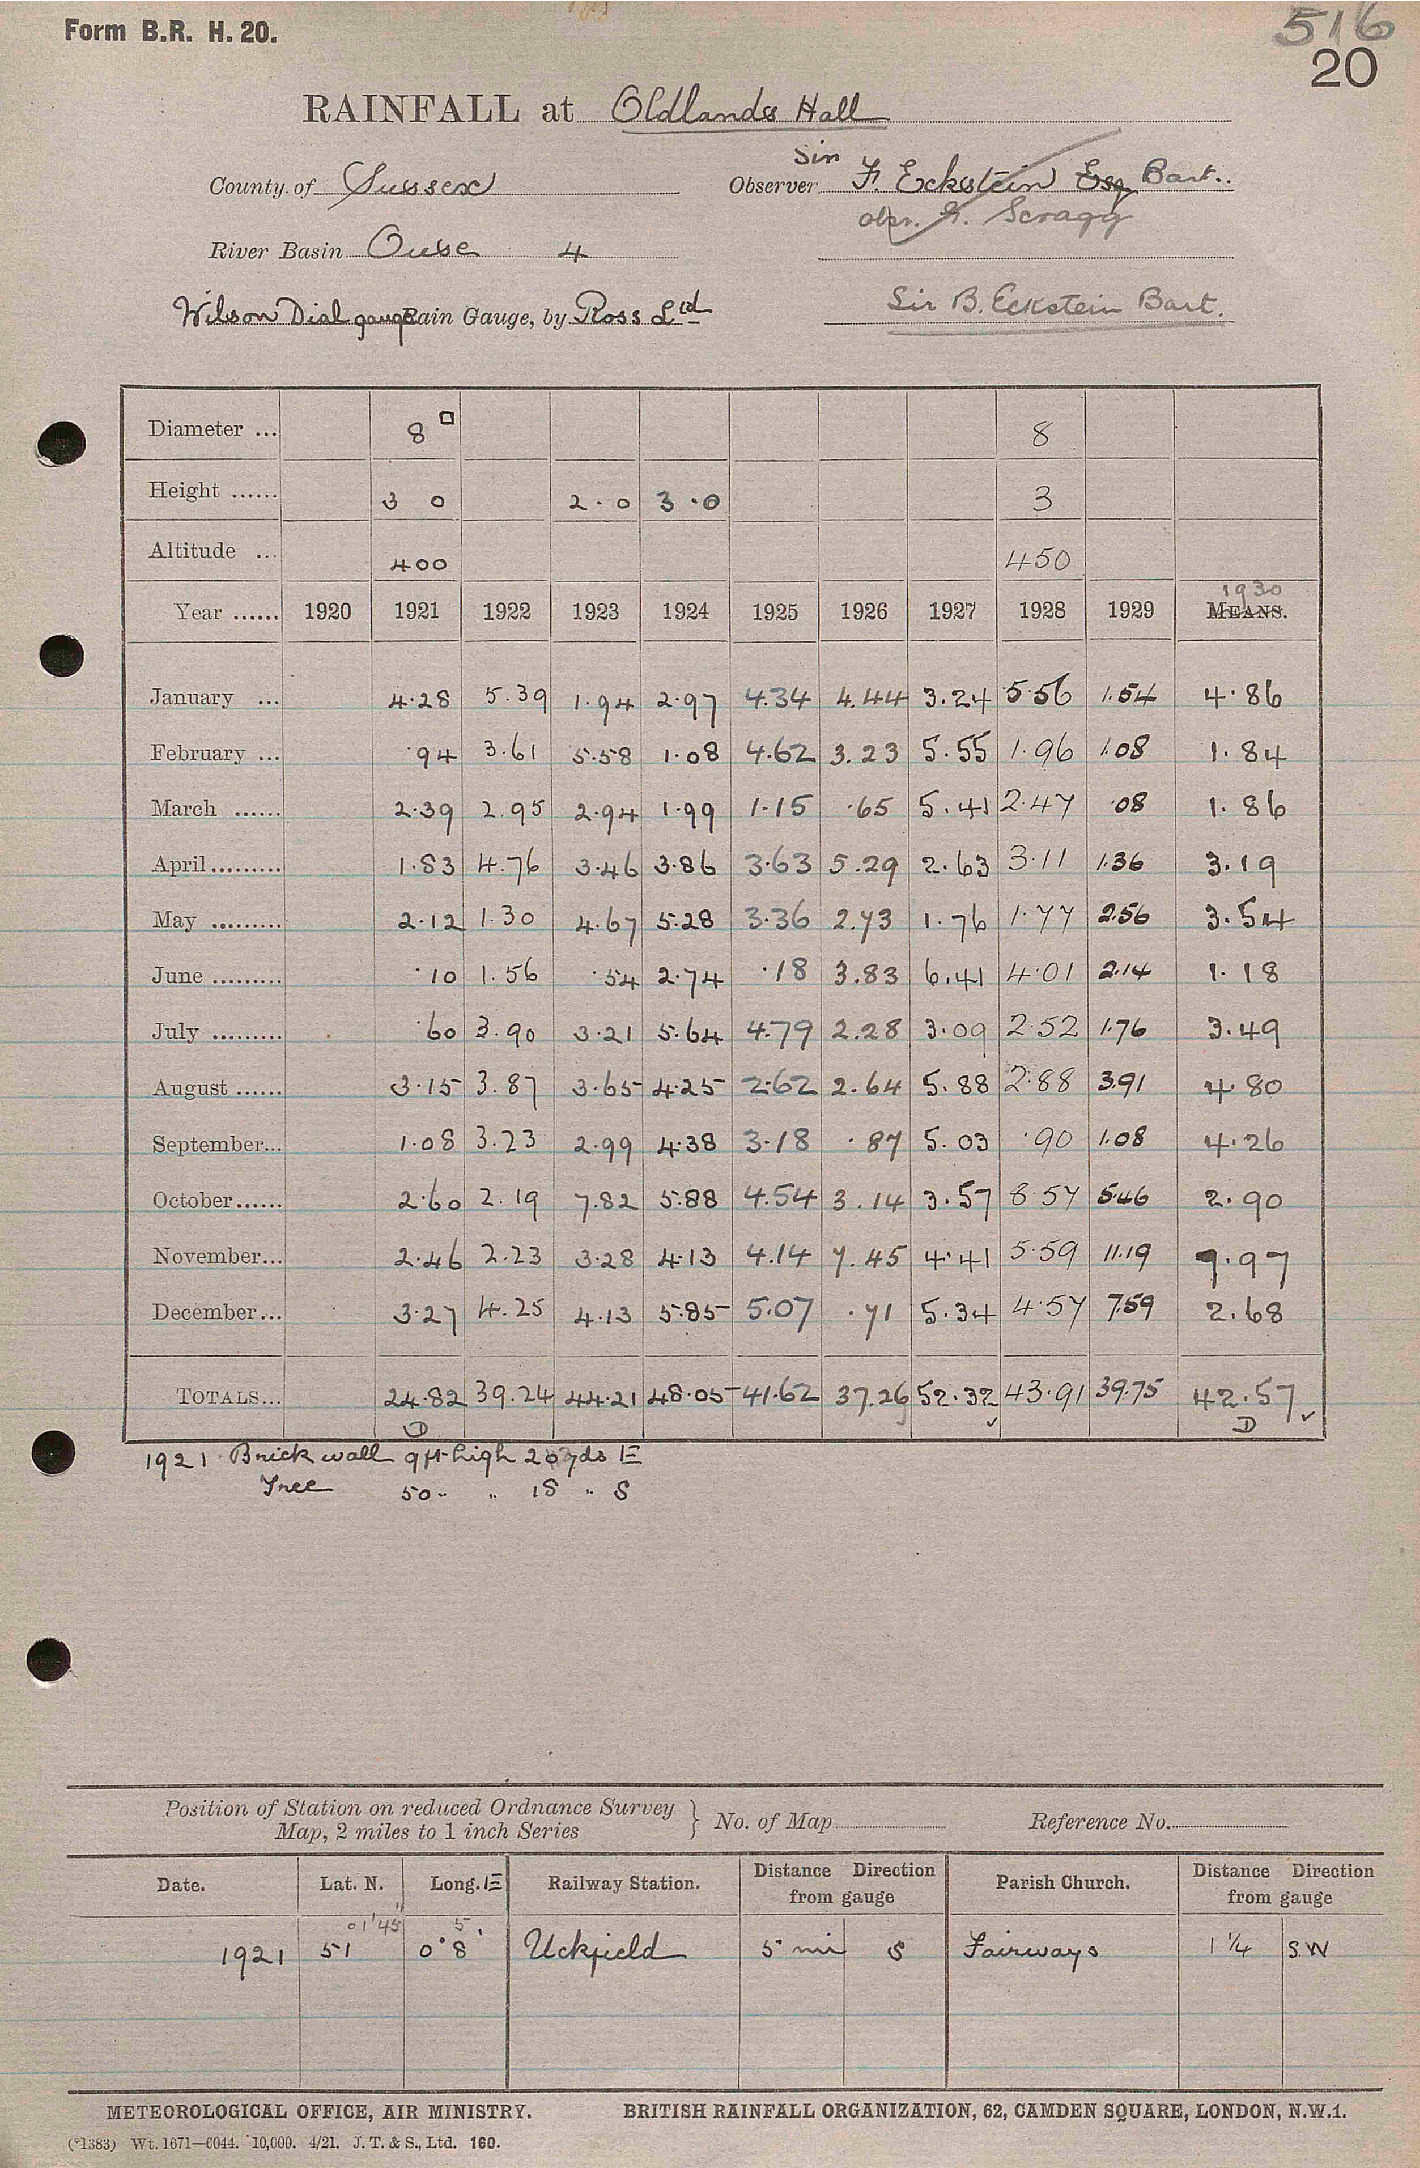 Form B.R. H. 20.
516
20
RAINFALL at Oldlands Hall
County of Sussex
Observer Sir F. Eckstein Esq Bart.
obsr. G. Scragg
River Basin Ouse 4
Wilson Dial gauge Rain Gauge, by Ross Ltd
Sir B. Eckstein Bart.
Diameter ... 8 □ 8
Height ...... 3 0 2.0 3.0 3
Altitude ... 400 450
1930
Year ...... 1920 1921 1922 1923 1924 1925 1926 1927 1928 1929 MEANS.
January ... 4.28 5.39 1.94 2.97 4.34 4.44 3.24 5.56 1.54 4.86
February ... .94 3.61 5.58 1.08 4.62 3.23 5.55 1.96 1.08 1.84
March ...... 2.39 2.95 2.94 1.99 1.15 .65 5.41 2.47 .08 1.86
April......... 1.83 4.76 3.46 3.86 3.63 5.29 2.63 3.11 1.36 3.19
May ......... 2.12 1.30 4.67 5.28 3.36 2.73 1.76 1.77 2.56 3.54
June ......... .10 1.56 .54 2.74 .18 3.83 6.41 4.01 2.14 1.18
July ......... .60 3.90 3.21 5.64 4.79 2.28 3.09 2.52 1.76 3.49
August ...... 3.15 3.87 3.65 4.25 2.62 2.64 5.88 2.88 3.91 4.80
September... 1.08 3.23 2.99 4.38 3.18 .87 5.03 .90 1.08 4.26
October...... 2.60 2.19 7.82 5.88 4.54 3.14 3.57 8.57 5.46 2.90
November... 2.46 2.23 3.28 4.13 4.14 7.45 4.41 5.59 11.19 7.97
December... 3.27 4.25 4.13 5.85 5.07 .71 5.34 4.57 7.59 2.68
TOTALS... 24.82 39.24 44.21 48.05 41.62 37.26 52.32 43.91 39.75 42.57
D ✓ D ✓
1921 Brick wall 9ft high 20 yds E
Tree 50 " " 18 " S
Position of Station on reduced Ordnance Survey
Map, 2 miles to 1 inch Series } No. of Map Reference No.
Date. Lat. N. Long. E Railway Station. Distance Direction from gauge Parish Church. Distance Direction from gauge
01'45" 5'
1921 51 0°8' Uckfield 5 mi S Fairways 1 1/4 S.W
METEOROLOGICAL OFFICE, AIR MINISTRY. BRITISH RAINFALL ORGANIZATION, 62, CAMDEN SQUARE, LONDON, N.W.1.
(*1383) Wt. 1671—6044. 10,000. 4/21. J. T. & S., Ltd. 160.